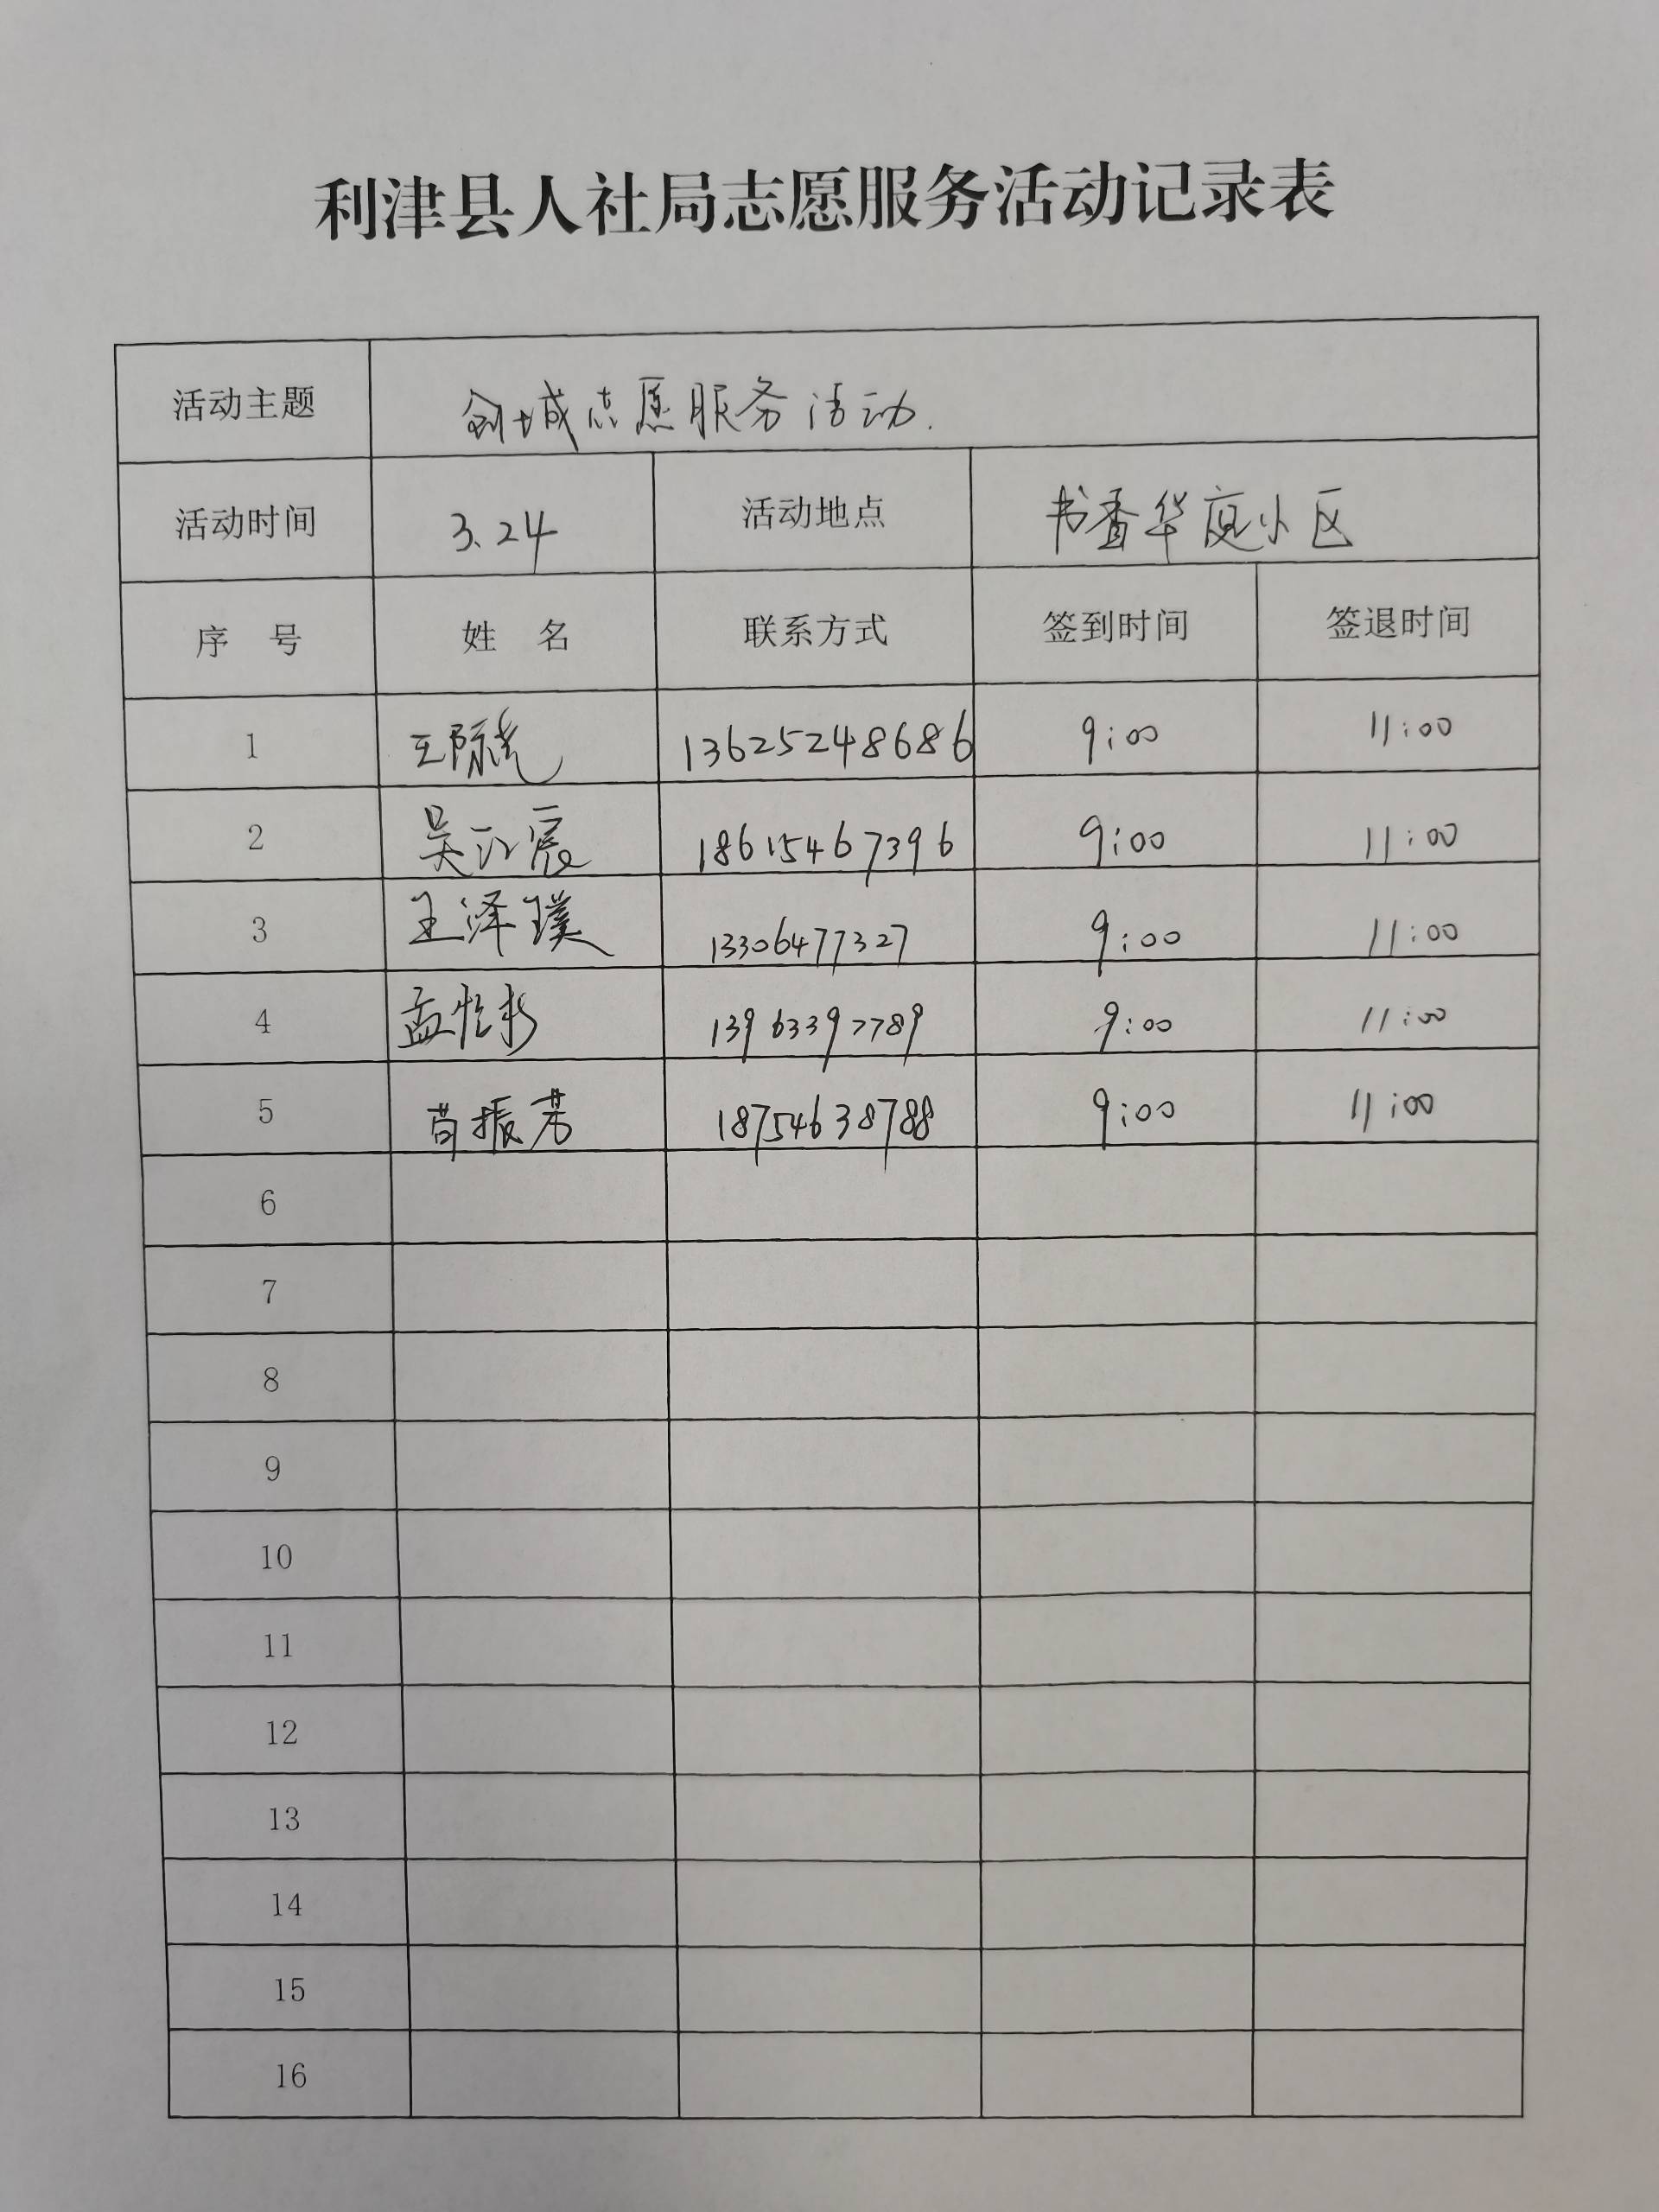 利津县人社局志愿服务活动记录表
活动主题 创城志愿服务活动.
活动时间 3.24 活动地点 书香华庭小区
序 号 姓 名 联系方式 签到时间 签退时间
1 13625248686 9:00 11:00
2 吴江宸 18615467396 9:00 11:00
3 王泽璞 13306477327 9:00 11:00
4 13963397789 9:00 11:00
5 苟振芳 18754638788 9:00 11:00
6
7
8
9
10
11
12
13
14
15
16